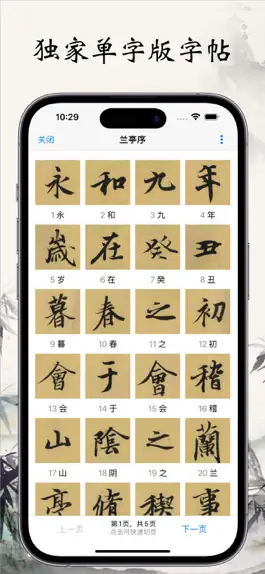 独家单字版字帖
10:29
关闭 兰亭序
永 和 九 年
1 永 2 和 3 九 4 年
歲 在 癸 丑
5 岁 6 在 7 癸 8 丑
暮 春 之 初
9 暮 10 春 11 之 12 初
會 于 會 稽
13 会 14 于 15 会 16 稽
山 陰 之 蘭
17 山 18 阴 19 之 20 兰
亭 脩 稧 事
上一页 第1页，共5页 下一页
点击可快速切页